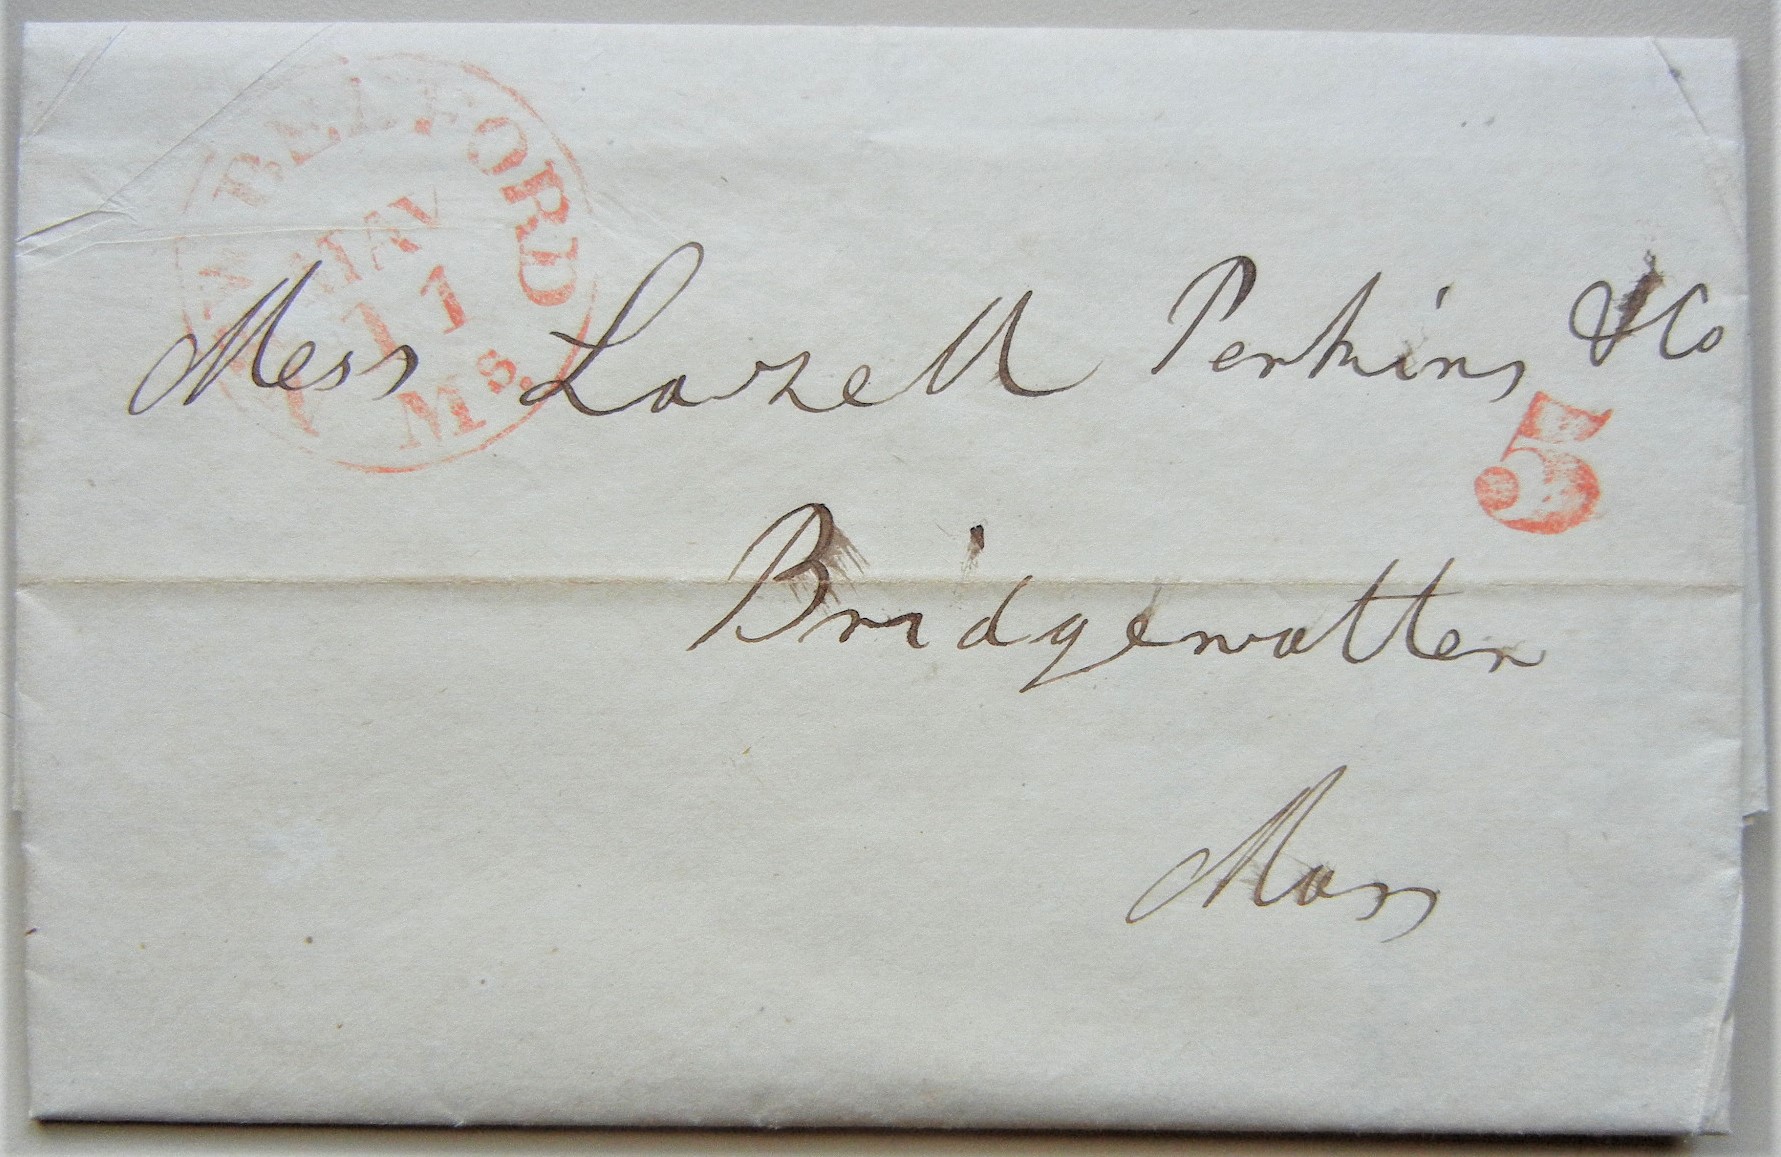 NEW BEDFORD
MAY
11
Ms.
Mess Lazell Perkins & Co
5
Bridgewatter
Mass